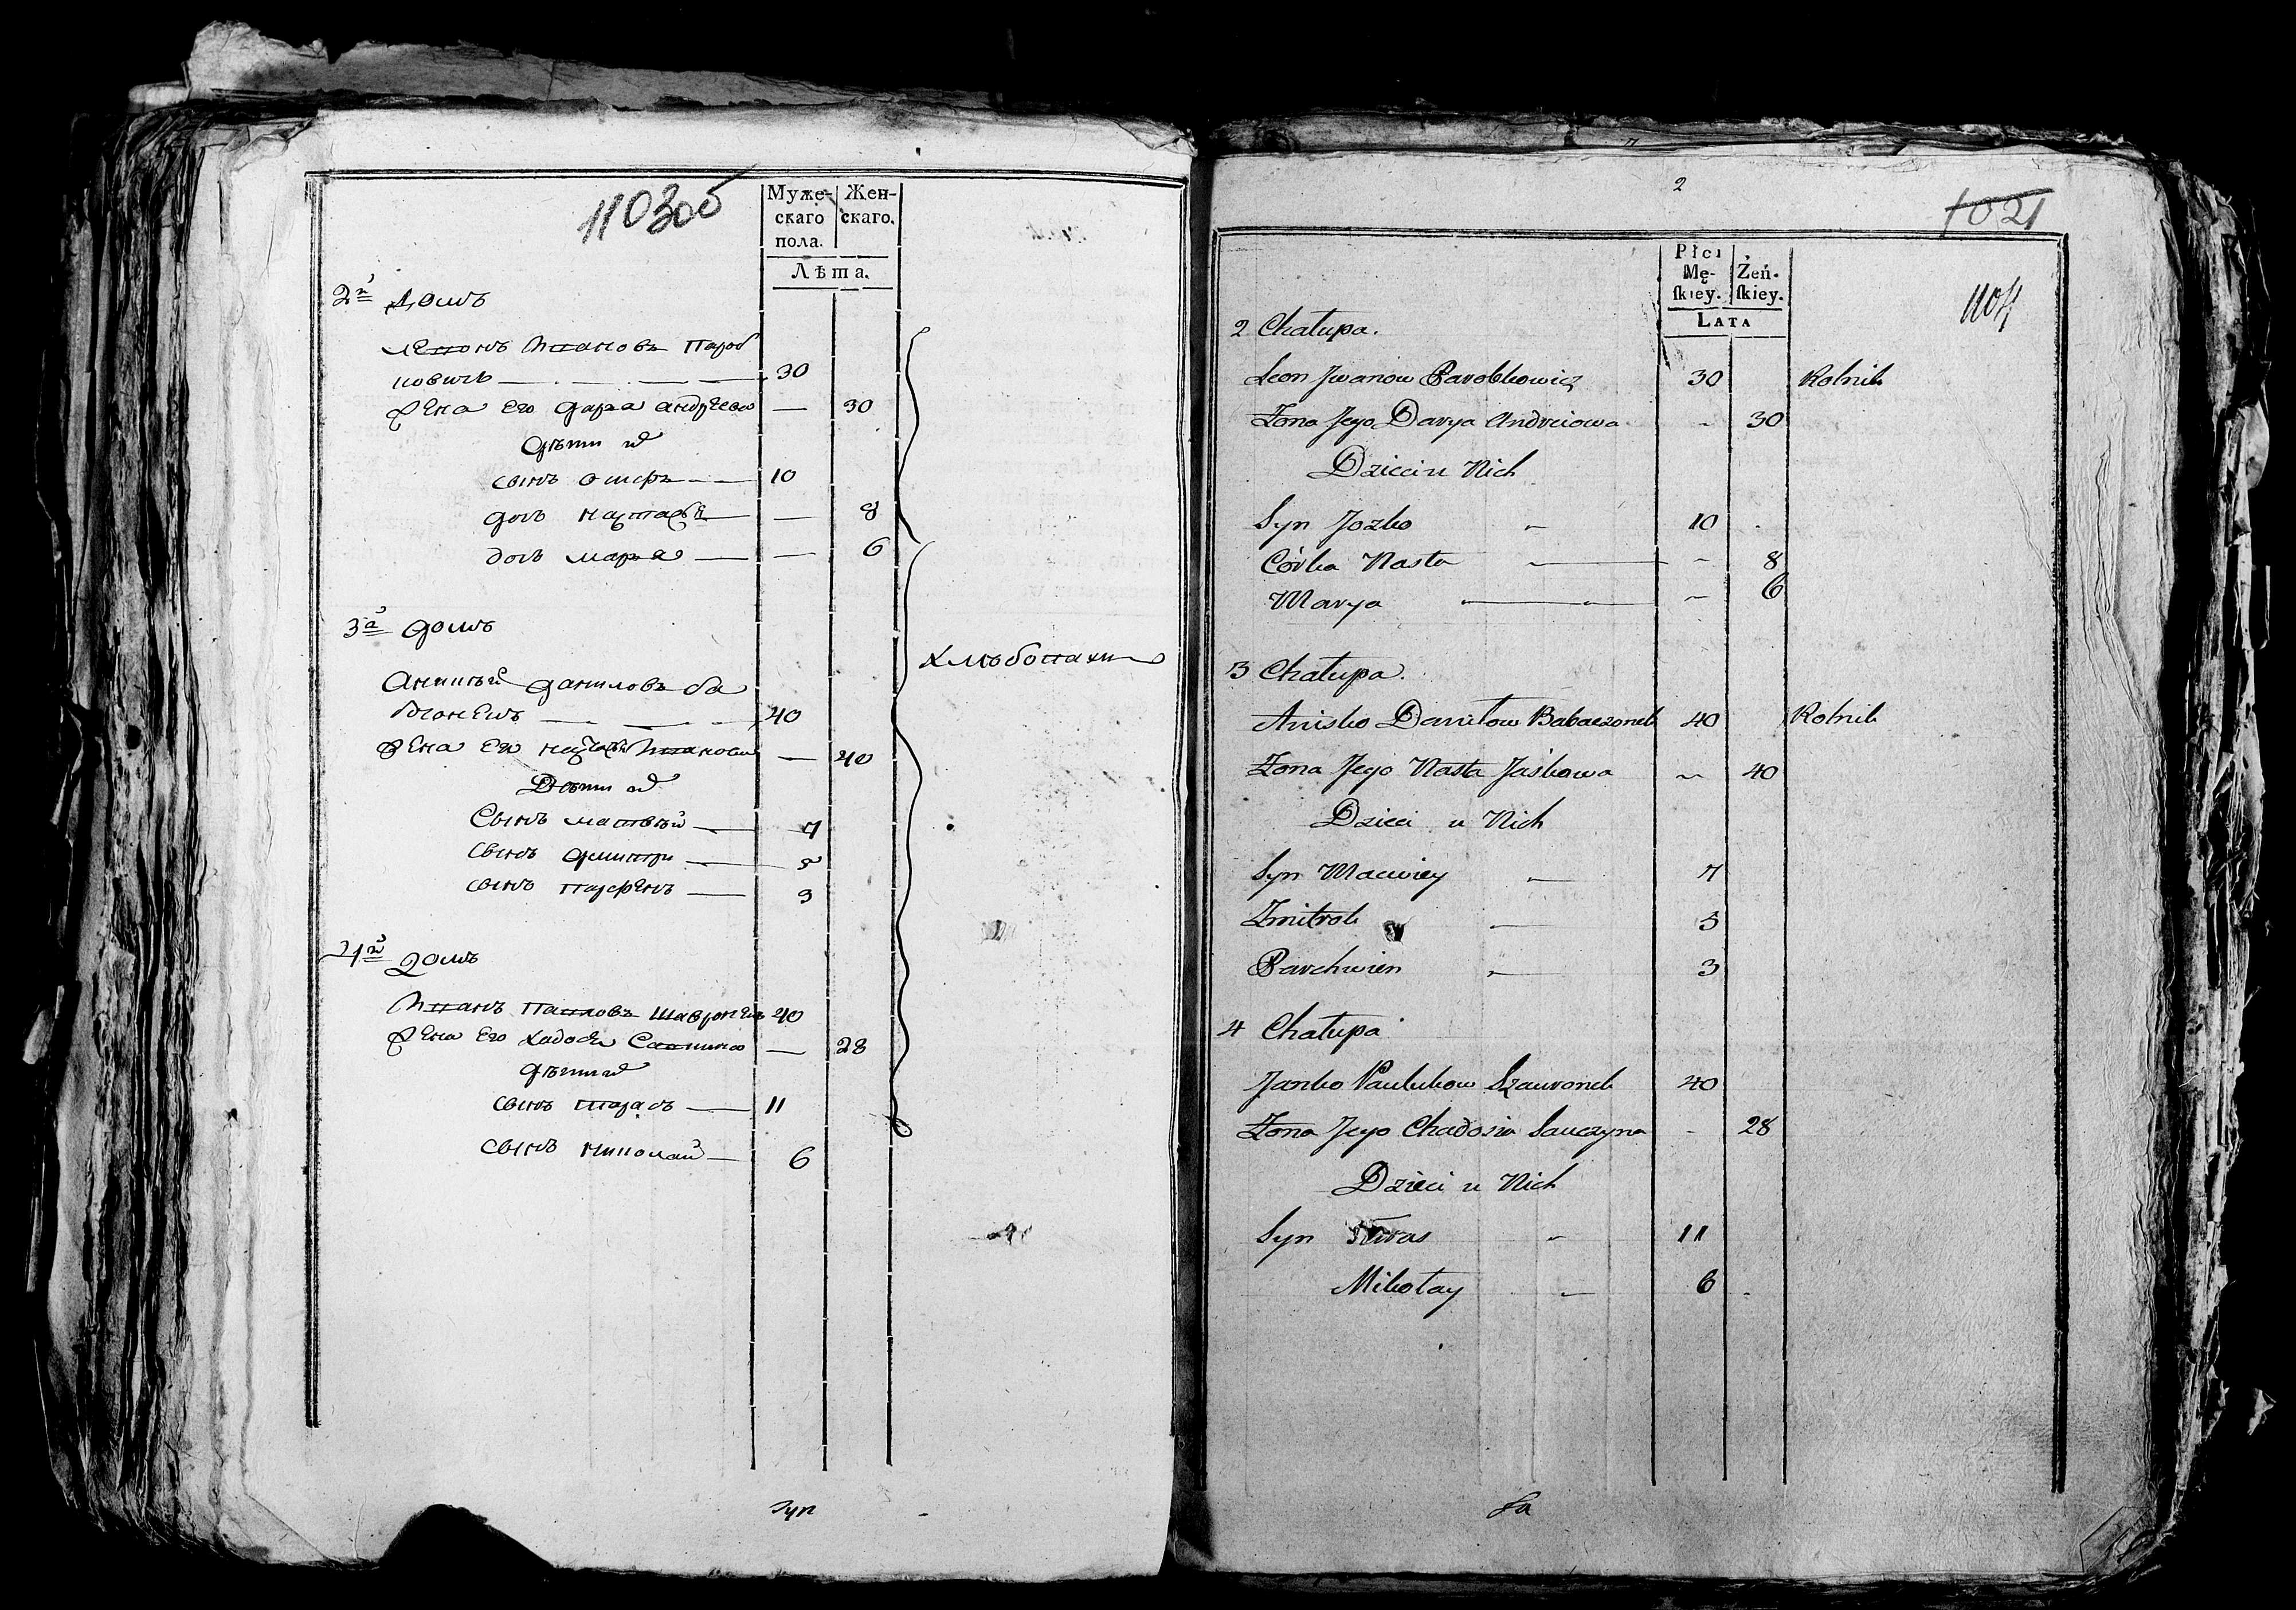 1103об
Муже- Жен-
скаго скаго.
пола.
Лѣта.
2й Домъ
Леонъ Ивановъ Пароб
ковичъ 30
Жена Его Дарья Андреева — 30
Дѣти ихъ
Сынъ Осипъ 10
дочь Настасья — 8
дочь Марья — 6
3й домъ
Анисѣй Даниловъ Ба
40
Жена Его Настасья Иванова — 40
Дѣти ихъ
Сынъ Матвѣй 7
Сынъ Дмитри 5
Сынъ Парфенъ 3
4й домъ
Иванъ Павловъ Шавронекъ 40
Жена Его Хадосья Савина — 28
дѣти ихъ
Сынъ Тарасъ 11
Сынъ Николай 6
Хлѣбопахи
2
1021
1104
Płci
Mę- Żeń-
skiey. skiey.
LATA
2 Chałupa.
Leon Jwanow Parobkowicz 30 Rolnik
Żona Jego Darya Andreiowa - 30
Dzieci u Nich
Syn Jozko 10
Córka Nasta - 8
Marya - 6
3 Chałupa.
Anisko Daniłow Babaczonek 40 Rolnik
Żona Jego Nasta Jaśkowa - 40
Dzieci u Nich
Syn Maciwiey 7
Zmitrok 5
Parchwien 3
4 Chałupa
Janko Paulukow Szauronek 40
Żona Jego Chadosia Sauczyna - 28
Dzieci u Nich
Syn Taras 11
Mikołay 6